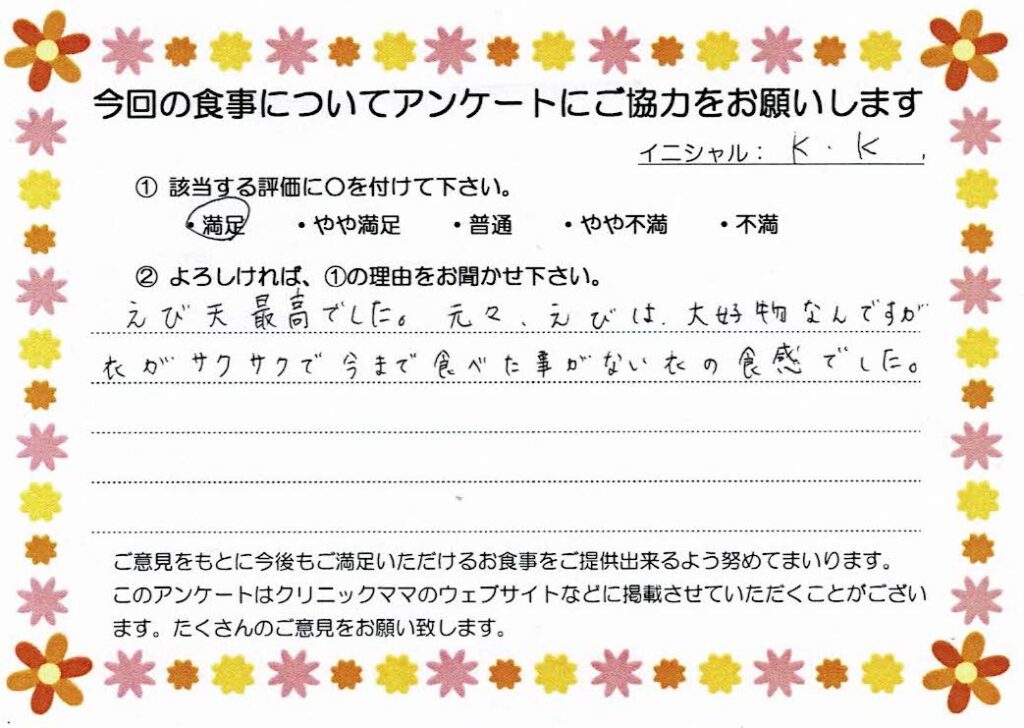 今回の食事についてアンケートにご協力をお願いします
イニシャル： K . K .
① 該当する評価に〇を付けて下さい。
・満足 ・やや満足 ・普通 ・やや不満 ・不満
② よろしければ、①の理由をお聞かせ下さい。
えび天最高でした。元々、えびは、大好物なんですが
衣がサクサクで今まで食べた事がない衣の食感でした。
ご意見をもとに今後もご満足いただけるお食事をご提供出来るよう努めてまいります。
このアンケートはクリニックママのウェブサイトなどに掲載させていただくことがござい
ます。たくさんのご意見をお願い致します。